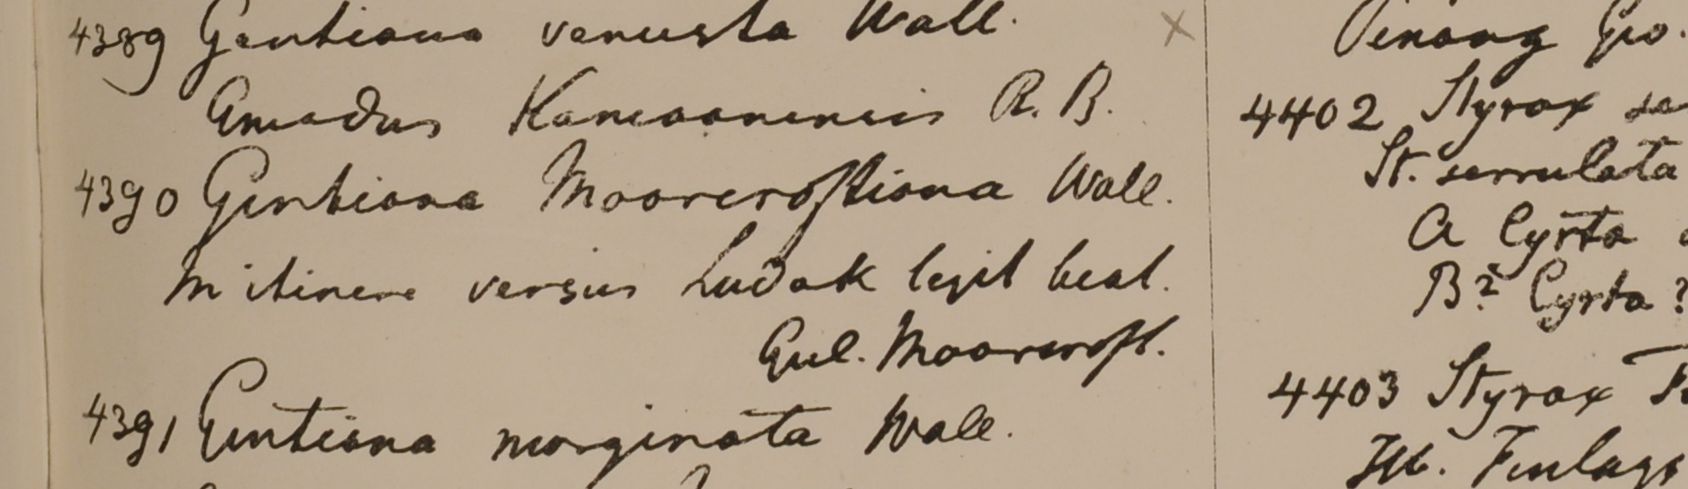 4389 Gentiana venusta Wall. ×
Emodus Kamaonensis R. B.
4390 Gentiana Moorcroftiana Wall.
In itinere versus Ludak legit beat.
Gul. Moorcroft.
4391 Gentiana marginata Wall.
Pinang Geo.
4402 Styrox se
St. serrulata
A Cyrta
B? Cyrta?
4403 Styrox
Hb. Finlays